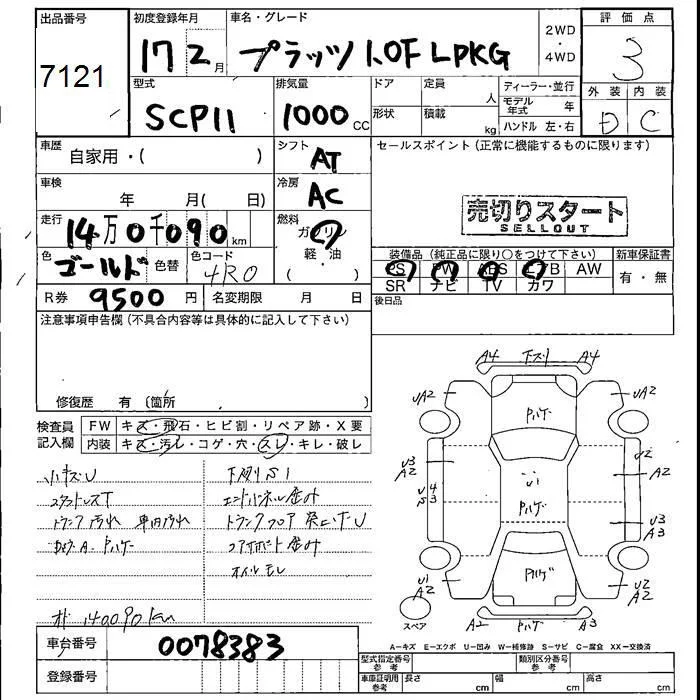 出品番号
7121
初度登録年月
17 2月
車名・グレード
プラッツ 1.0F LPKG
2WD
・
4WD
評価点
3
外装 内装
D C
型式
SCP11
排気量
1000cc
ドア
形状
定員
人
積載
kg
ディーラー・並行
モデル年式 年
ハンドル 左・右
車歴
自家用・( )
シフト
AT
セールスポイント (正常に機能するものに限ります)
車検
年 月( 日)
冷房
AC
売切りスタート
SELLOUT
走行
14万0千090km
燃料
ガソリン
軽・油
・( )
色
ゴールド
色替
色コード
4R0
装備品 (純正品に限り○をつけて下さい)
PS PW ABS エアB AW
SR ナビ TV カワ
新車保証書
有・無
R券
9500円
名変期限 月 日
後日品
注意事項申告欄 (不具合内容等は具体的に記入して下さい)
修復歴 有 (箇所
検査員記入欄
FW キズ・飛石・ヒビ割・リペア跡・X要
内装 キズ・汚レ・コゲ・穴・スレ・キレ・破レ
小キズU
スタットレスT
トランク汚れ 車内汚れ
下廻りS1
エンドパネル歪み
トランクフロア突上げU
コアサポート歪み
オイルモレ
140090km
A4 下スリ A4
UA2
UA2
Pハゲ
U3
A2
U2
A2
U1
U4
S3
Pハゲ
U3
A3
U1
A2
Pハゲ
U2
A2
スペア
A2 Pハゲ A3
A−キズ E−エクボ U−凹み W−補修跡 S−サビ C−腐食 XX−交換済
車台番号
0078383
登録番号
型式指定番号
参考
類別区分番号
参考
車庫証明用
参考
長さ cm
幅 cm
高さ cm